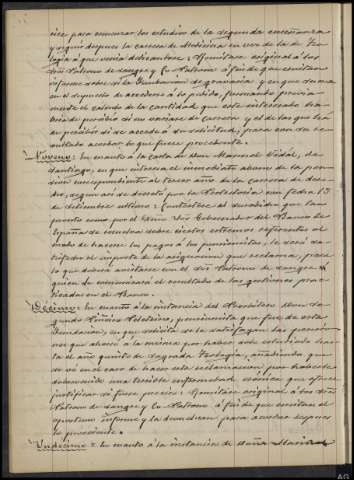 cise para comenzar los estudios de la segunda enseñanza
y seguir despues la carrera de Medicina en vez de la de Teo-
logía á que venia dedicandose; Remitase original á los
Sres Patrono de sangre y Co-Patrono á fin de que emitan
informe sobre si la Fundacion es gravaría y en que suma
en el supuesto de accederse á lo pedido, formando previa-
mente el calculo de la cantidad que este interesado ha-
de percibir si no variase de carrera y el de las que ha
de percibir si se accede á su solicitud, para con su re-
sultado acordar lo que fuere procedente.
Noveno: En cuanto á la carta de Don Manuel Vidal, de
Santiago, en que interesa el inmediato abono de la pen-
sion correspondiente al tercer año de la carrera de dere-
cho, segun asi se decretó por la Protectoria con fecha 13
de diciembre ultimo: Contestese al recibida que tan
pronto como por el Excmo Sr Gobernador del Banco de
España se resuelva sobre ciertos extremos referentes al
modo de hacerse los pagos á los pensionistas, le será sa-
tisfecho el importe de la asignacion que reclama, para
lo que deberá avistarse con el Sr Patrono de sangre
quien le comunicará el resultado de las gestiones prac-
ticadas en el Banco.
Décimo: En cuanto á la instancia del Presbítero Don Sa-
gundo Piñeiro Peleteiro, pensionista que fue de esta
Fundacion, en que solicita se le satisfagan las pensio-
nes que abonó á la misma por haber solo estudiado has-
ta el año quinto de Sagrada Teología, añadiendo que
se vé en el caso de hacer esta reclamacion por haberle
sobrevenido una terrible enfermedad crónica que ofrece
justificar si fuese preciso: Remitase original á los Sres
Patrono de sangre y Co-Patrono á fin de que emitan el
oportuno informe y la devuelvan para acordar despues
lo procedente.
Undécimo: En cuanto á la instancia de Doña Maria
AG